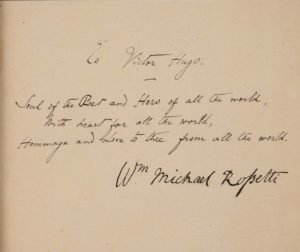 To Victor Hugo.
—
Soul of the Poet and Hero of all the world,
With heart for all the world,
Hommage and Love to thee from all the world.
Wm Michael Rossetti